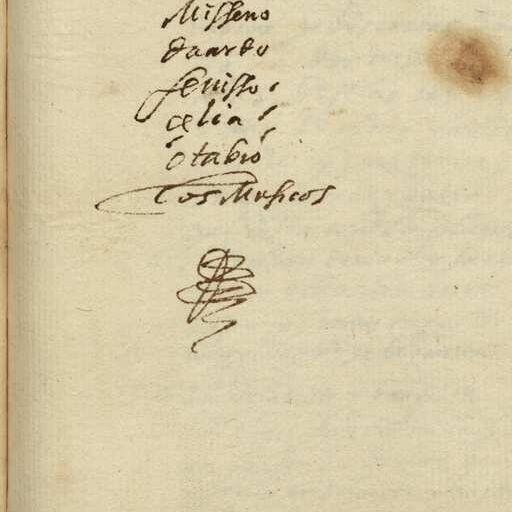 Misseno
duardo
feniso
çelia
otabio
los Musicos